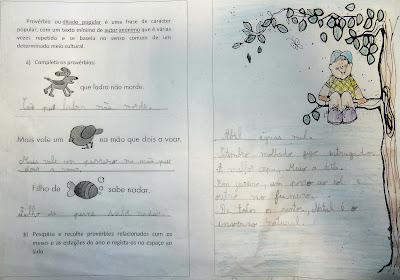 Provérbio ou ditado popular é uma frase de carácter
popular, com um texto mínimo de autor anónimo que é várias
vezes repetido e se baseia no senso comum de um
determinado meio cultural.
a) Completa os provérbios:
que ladra não morde.
Cão que ladra não morde.
Mais vale um na mão que dois a voar.
Mais vale um pássaro na mão que
dois a voar.
Filho de sabe nadar.
Filho de peixe sabe nadar.
b) Pesquisa e recolhe provérbios relacionados com os
meses e as estações do ano e regista-os no espaço ao
lado.
Abril águas mil.
Setembro molhado figo estragado.
Em janeiro, um porto ao sol e
outro no fumeiro.
De todos os santos, ao Natal é o
inverno natural.